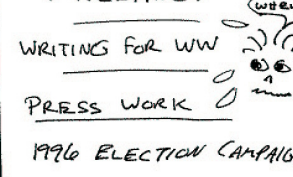 WRITING FOR WW
PRESS WORK
1996 ELECTION